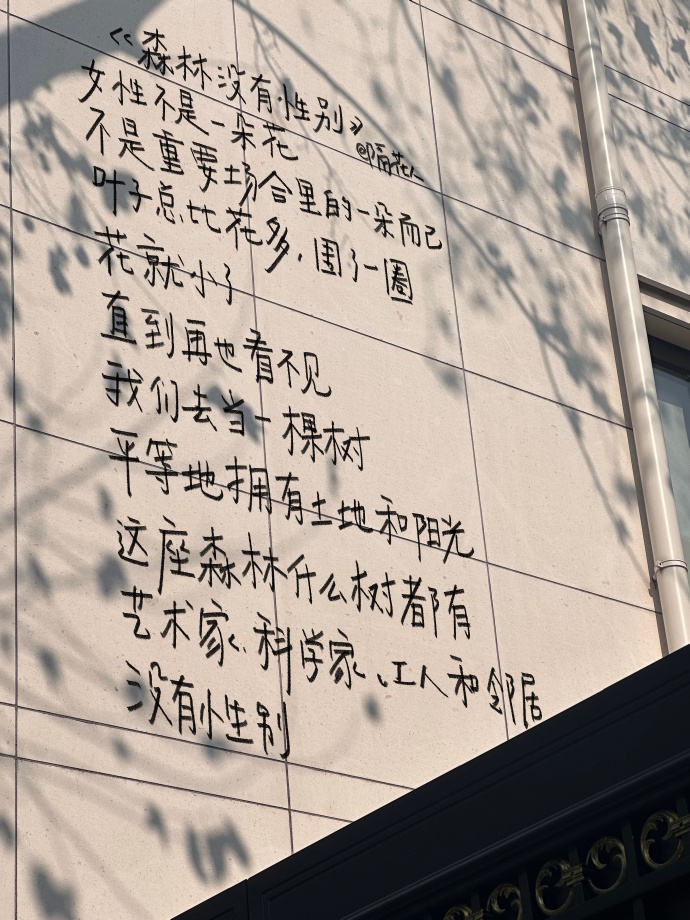 《森林没有性别》
@隔花人
女性不是一朵花
不是重要场合里的一朵而已
叶子总比花多，围了一圈
花就小了
直到再也看不见
我们去当一棵树
平等地拥有土地和阳光
这座森林什么树都有
艺术家、科学家、工人和邻居
没有性别